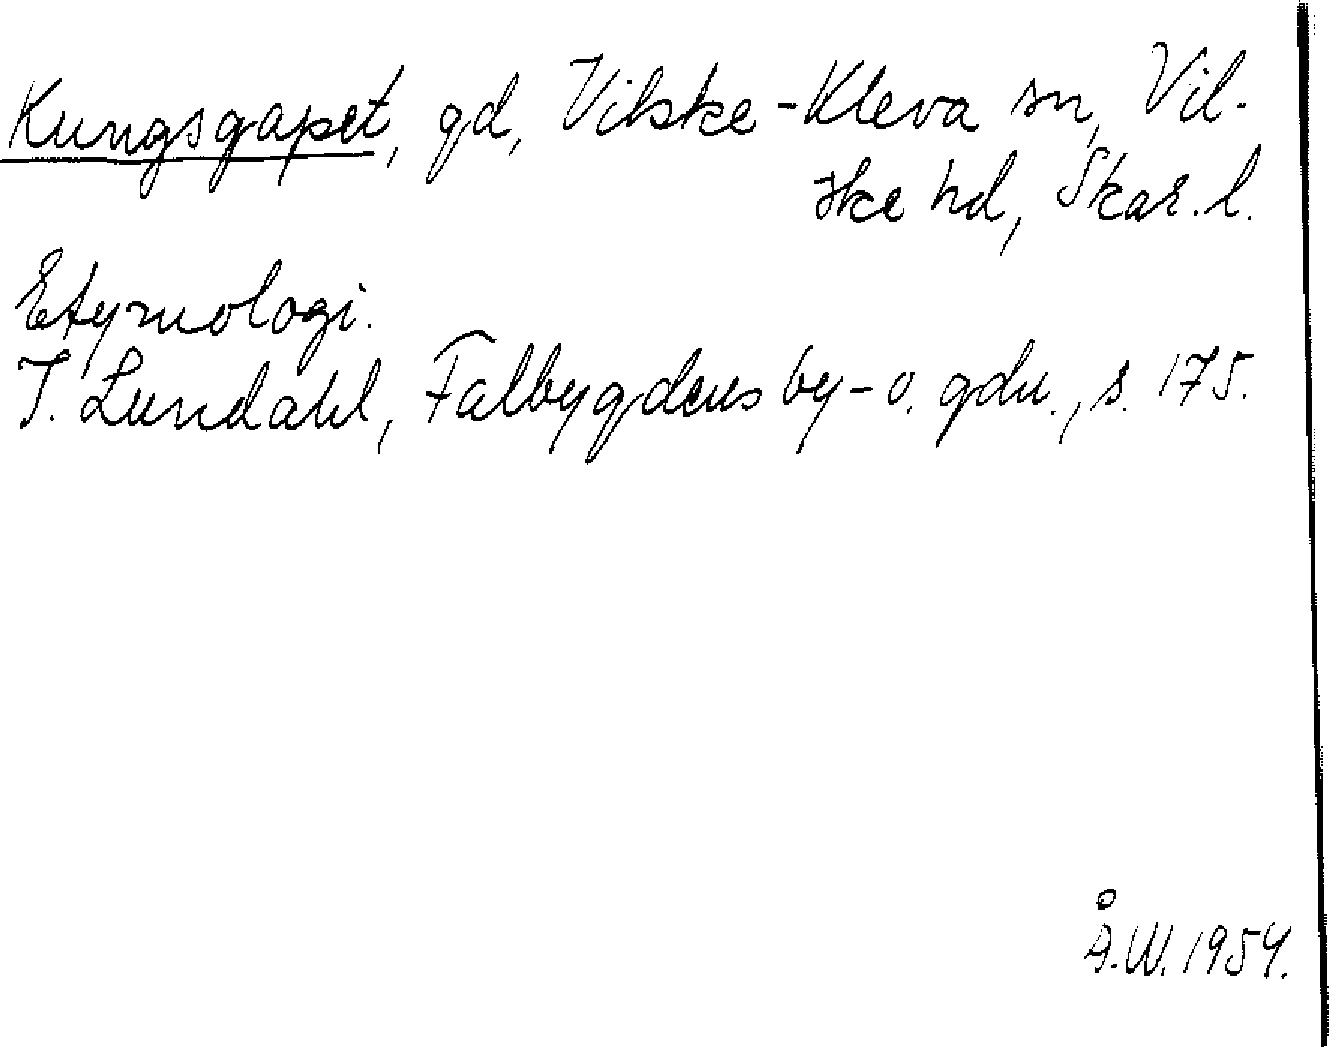 Kungsgapet, gd, Vilske-Kleva sn, Vil-
ske hd, Skar. l.
Etymologi.
I. Lundahl, Falbygdens by- o. gdn., s. 175.
Å.W. 1954.